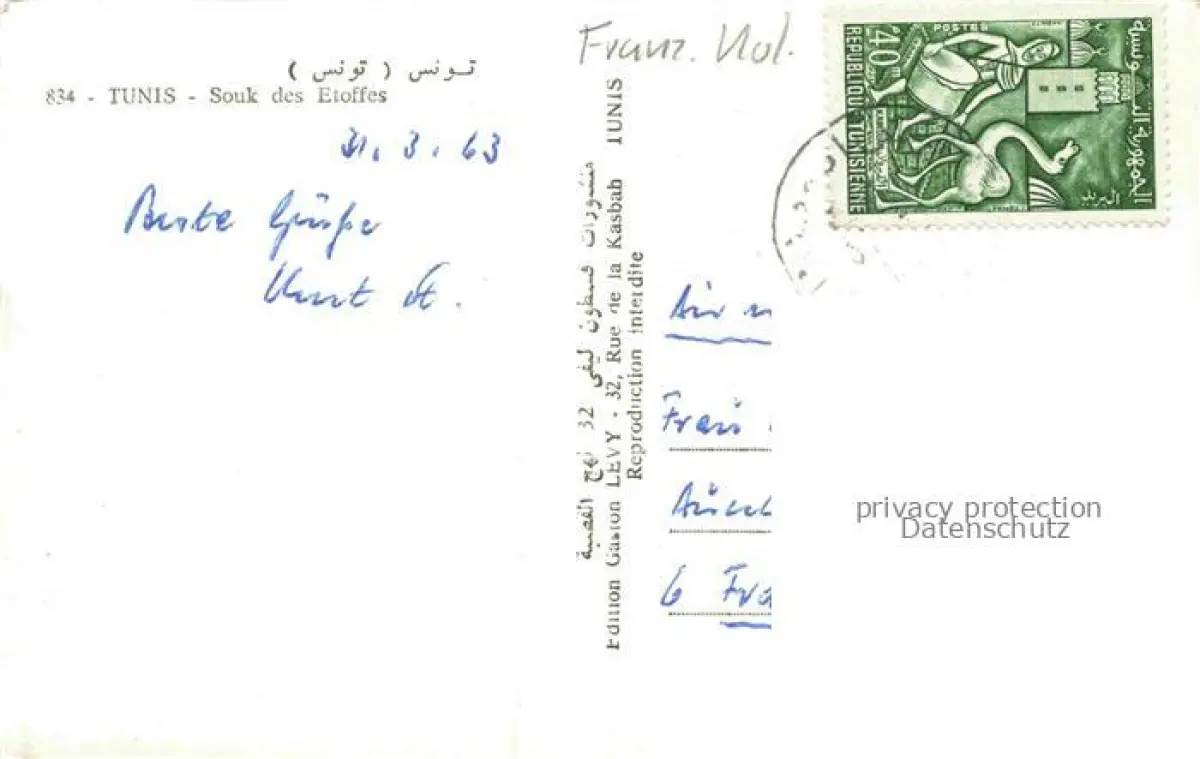 تونس ( تونس )
834 - TUNIS - Souk des Etoffes
31. 3. 63
Beste Grüße
Kurt
منشورات قسطون ليفي 32 نهج القصبة
Edition Gaston LEVY - 32, Rue de la Kasbah TUNIS
Reproduction interdite
Franz. Kol.
POSTES
40
REPUBLIQUE TUNISIENNE
الجمهورية التونسية
البريد
Air
Frau
6 Fra
privacy protection
Datenschutz